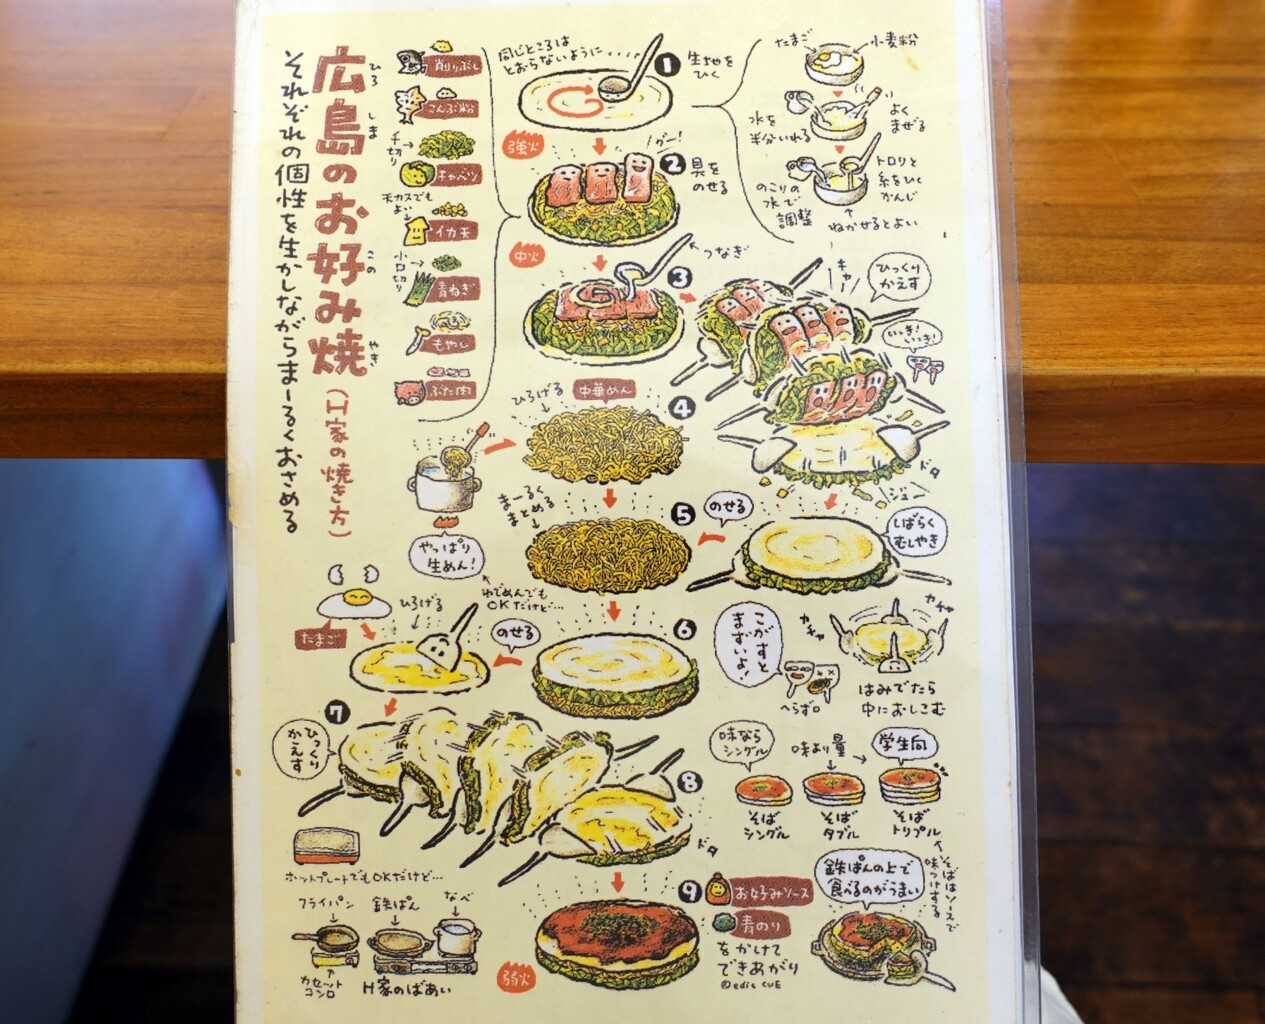 広島のお好み焼(H家の焼き方)
ひろ
しま
この
やき
それぞれの個性を生かしながらまーるくおさめる
削りぶし
こんぶ粉
千切り
キャベツ
天カスでも
よい
イカ天
小口切り
青ねぎ
もやし
ぶた肉
同じところは
とおらないように
1
生地を
ひく
たまご
小麦粉
水を
半分いれる
よく
まぜる
のこりの
水で
調整
トロリと
糸をひく
かんじ
ねかせるとよい
強火
2
具を
のせる
ガー!
中火
つなぎ
3
キャー
ひっくり
かえす
いっき!
いっき!
ドタ
ジュー
ひろげる
中華めん
4
やっぱり
生めん!
まーるく
まとめる
5
のせる
しばらく
むしやき
ゆでめんでも
OKだけど…
たまご
ひろげる
のせる
6
こがすと
まずいよ!
へらずロ
カチャ
カチャ
はみでたら
中におしこむ
7
ひっくり
かえす
8
ドタ
味なら
シングル
味より量
学生向
そば
シングル
そば
ダブル
そば
トリプル
そばはソースで
味つけする
ホットプレートでもOKだけど…
フライパン
鉄ぱん
なべ
カセット
コンロ
H家のばあい
弱火
9
お好みソース
青のり
をかけて
できあがり
©edit CUE
鉄ぱんの上で
食べるのがうまい